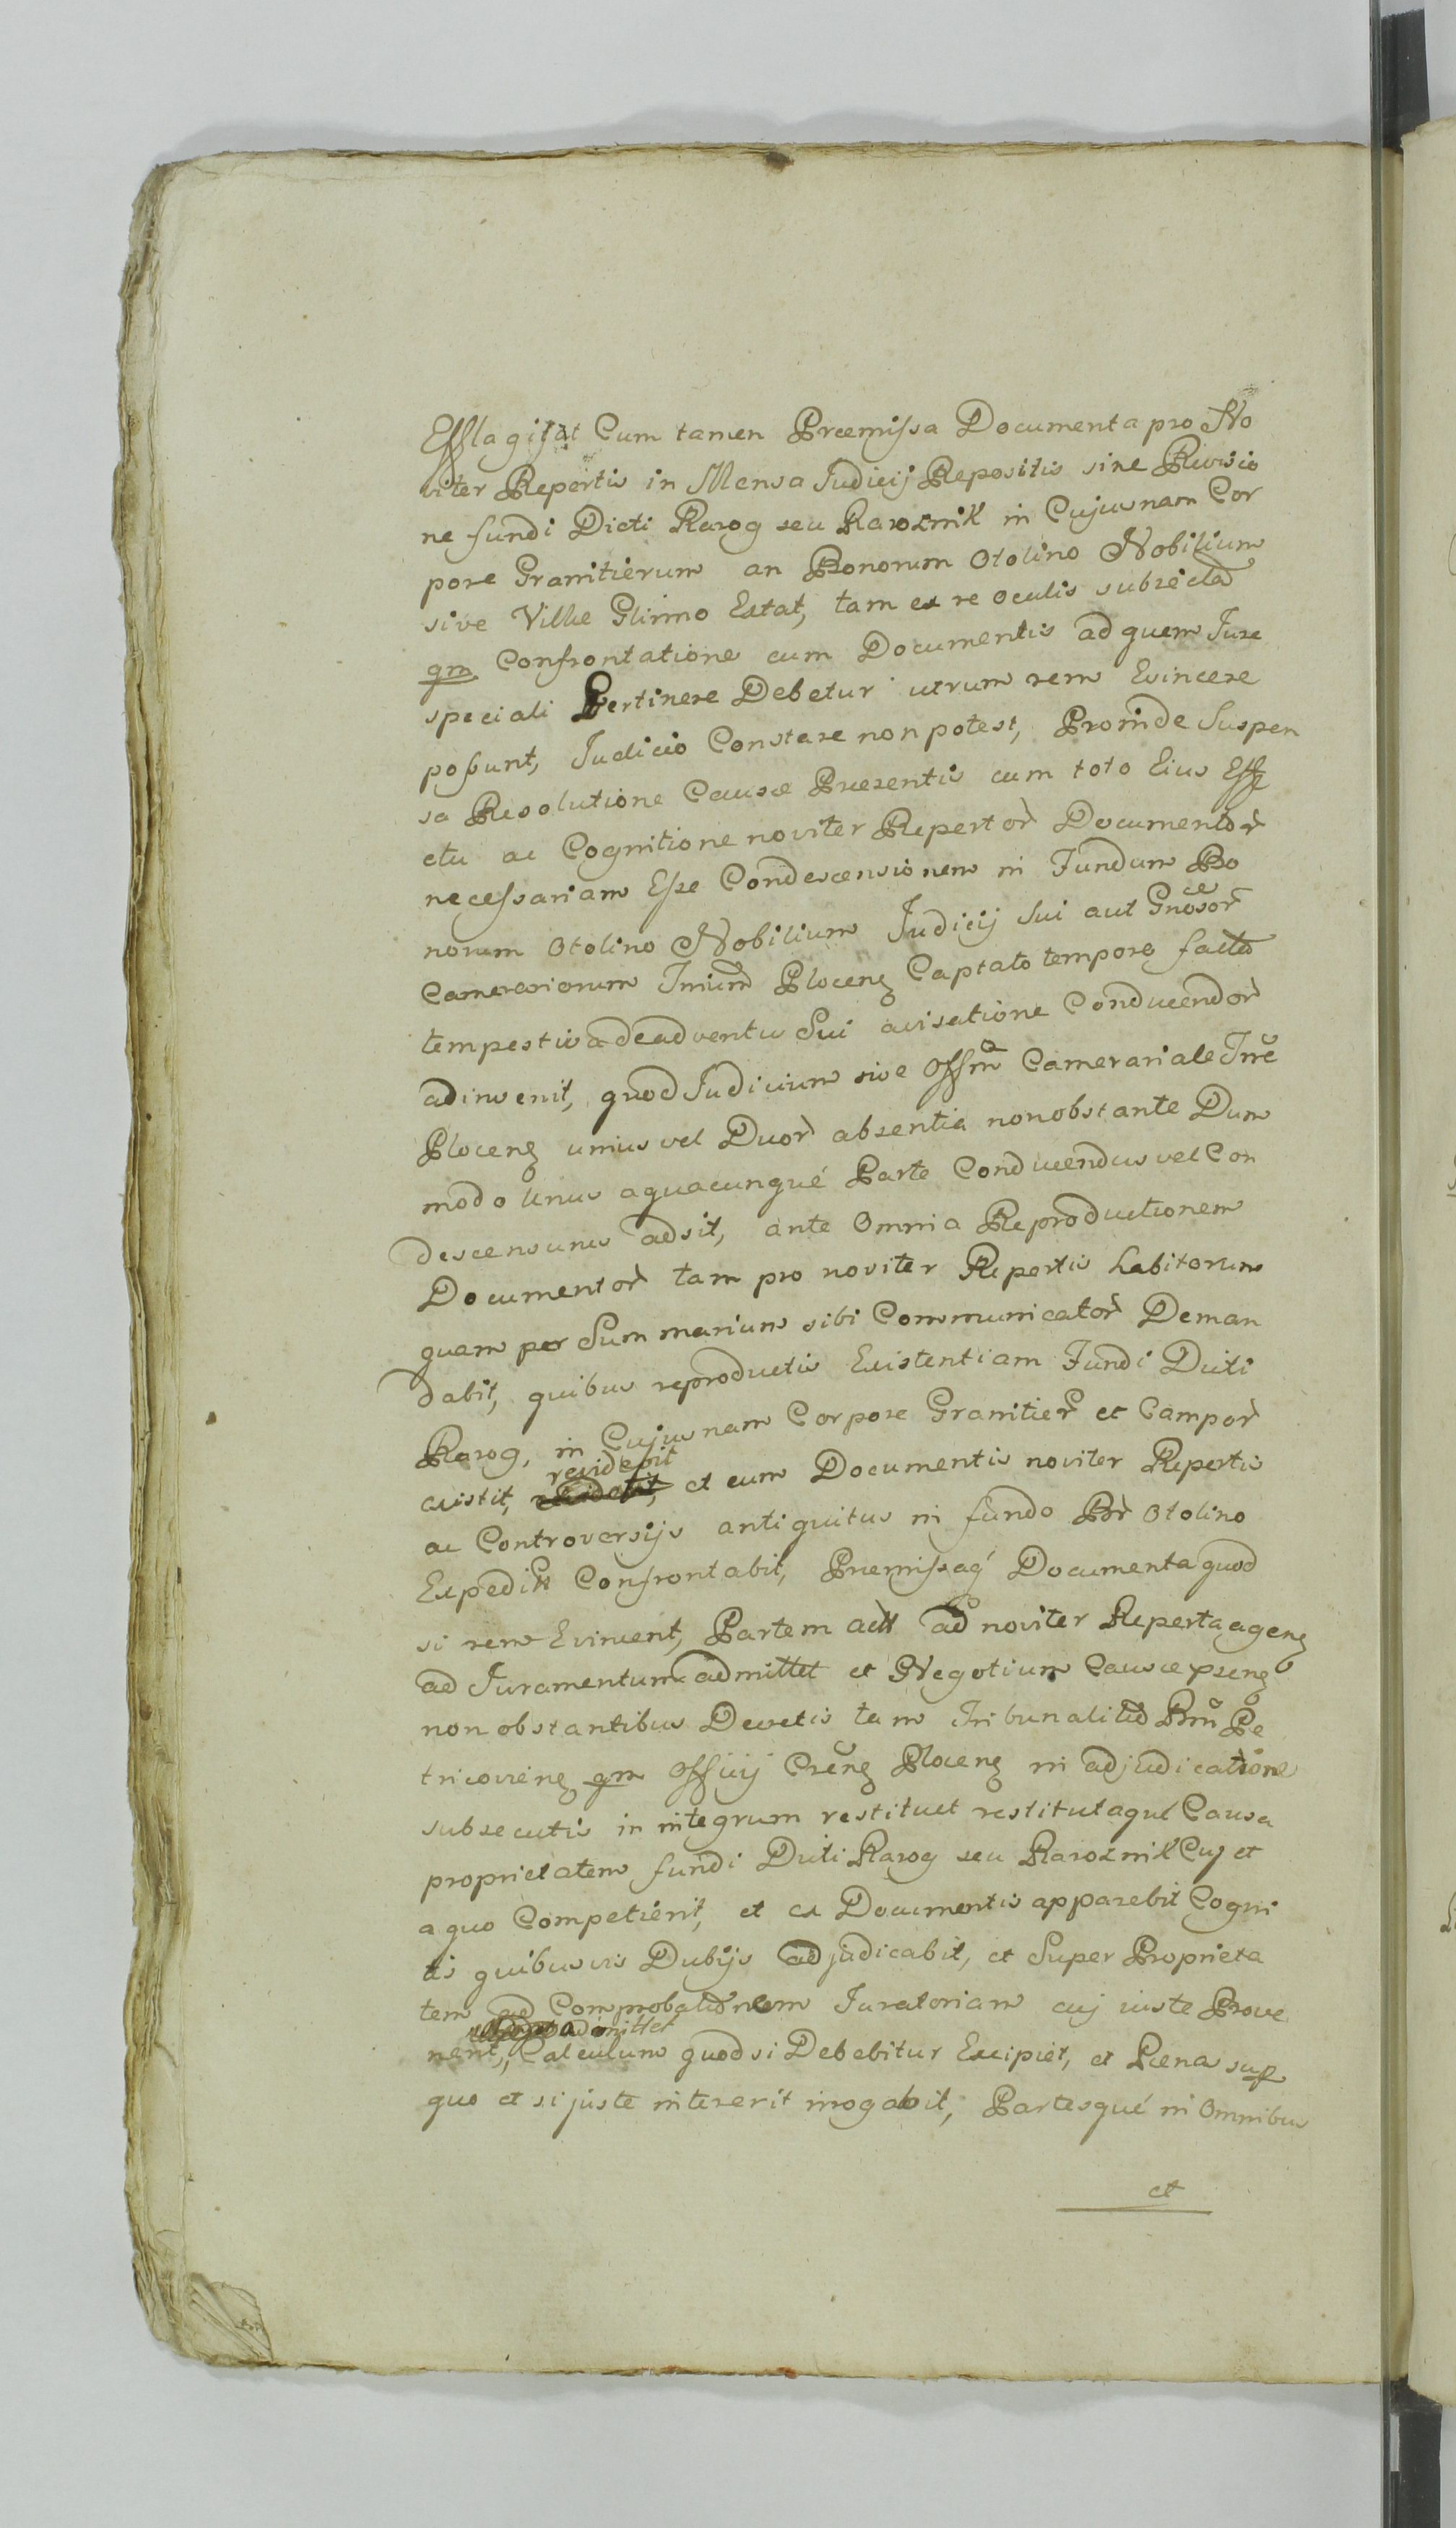 Efflagitat Cum tamen Præmissa Documenta pro No
viter Repertis in Mensa Judicij Repositis sine Revisio
ne fundi Dicti Rarog seu Rarożnik in Cujusnam Cor
pore Granitierum an Bonorum Otolino Nobilium
sive Villæ Glinno Extat, tam ex re oculis subiecta
qm Confrontatione cum Documentis ad quem Jure
speciali Pertinere Debetur utrum rem Evincere
possunt, Judicio Constare non potest, Proinde Suspen
sa Resolutione Causæ Præsentis cum toto Eius Effe
ctu ac Cognitione noviter Repertor Documentor
necessariam Esse Condescensionem in Fundum Bo
norum Otolino Nobilium Judicij Sui aut Gnosor
Camerariorum Trium Plocen Captato tempore facta
tempestiva de adventu Sui avisatione Conducendor
adinvenit, quod Judicium sive Offm Camerariale Trre
Plocen unius vel Duor absentia non obstante Dum
modo Unus a quacunqué Parte Conducendus vel Con
descensurus adsit, ante Omnia Reproductionem
Documentor tam pro noviter Repertis habitorum
quam per Summarium sibi Communicator Deman
dabit, quibus reproductis Existentiam Fundi Dicti
Rarog, in Cujusnam Corpore Granitier et Campor
existit, revidebit et cum Documentis noviter Repertis
ac Controversijs antiquitus in fundo Br Otolino
Expedit Confrontabit, Præmissaq Documenta quod
si rem Evincent, Partem ad noviter Reperta agen
ad Juramentum admittet et Negotium Causæ psen
non obstantibus Decretis tam Tribunalitio Brm Pe
tricovien qm Officij Cren Plocen in adjudicatione
subsecutis in integrum restituet restitutaqué Causa
proprietatem fundi Dicti Rarog seu Rarożnik Cuj et
a quo Competierit, et ex Documentis apparebit Cogni
tis quibusvis Dubijs adjudicabit, et Super Proprieta
tem ad Comprobationem Juratoriam cuj iuste Prove
nerit, admittet Calculum quod si Debebitur Excipiet, et Pæna sup
quo et si juste intererit irrogabit, Partesqué in Omnibus
et